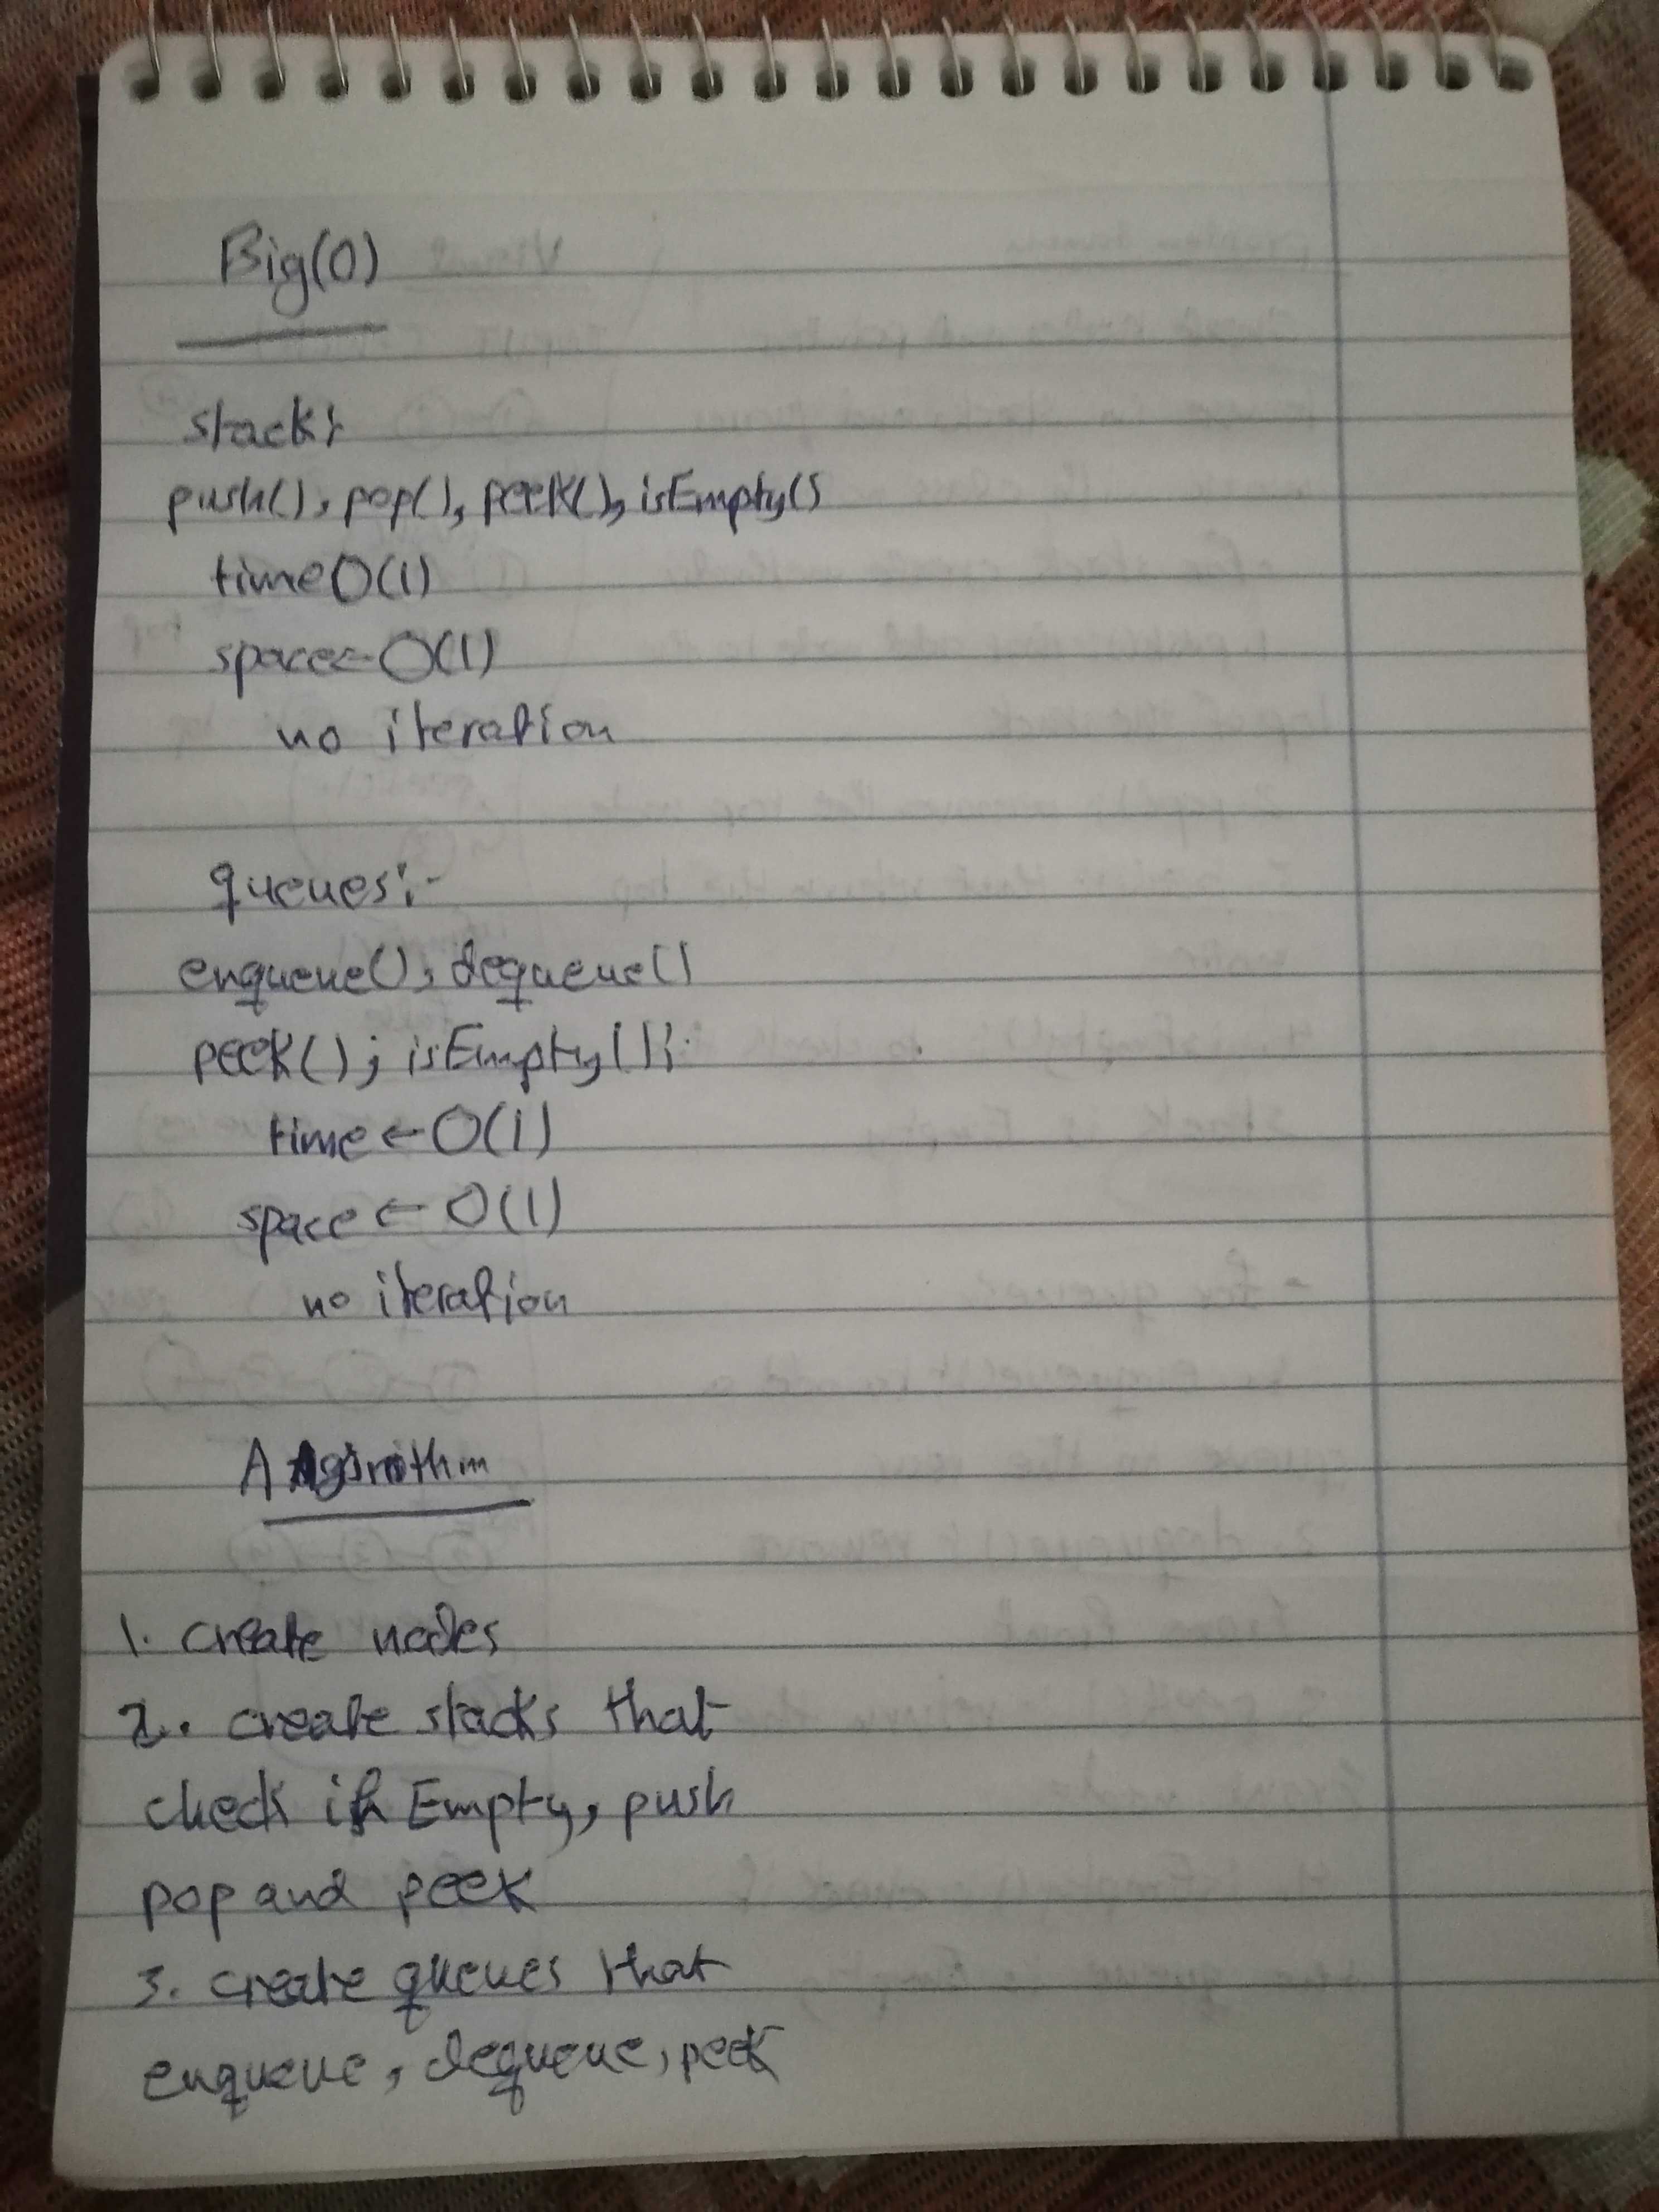 Big(O)
stack:
push(), pop(), peek(), isEmpty()
time O(1)
space ← O(1)
no iteration
queues:-
enqueue(), dequeue()
peek(); isEmpty();
time ← O(1)
space ← O(1)
no iteration
Algorithm
1. create nodes
2. create stacks that
check if Empty, push
pop and peek
3. create queues that
enqueue, dequeue, peek